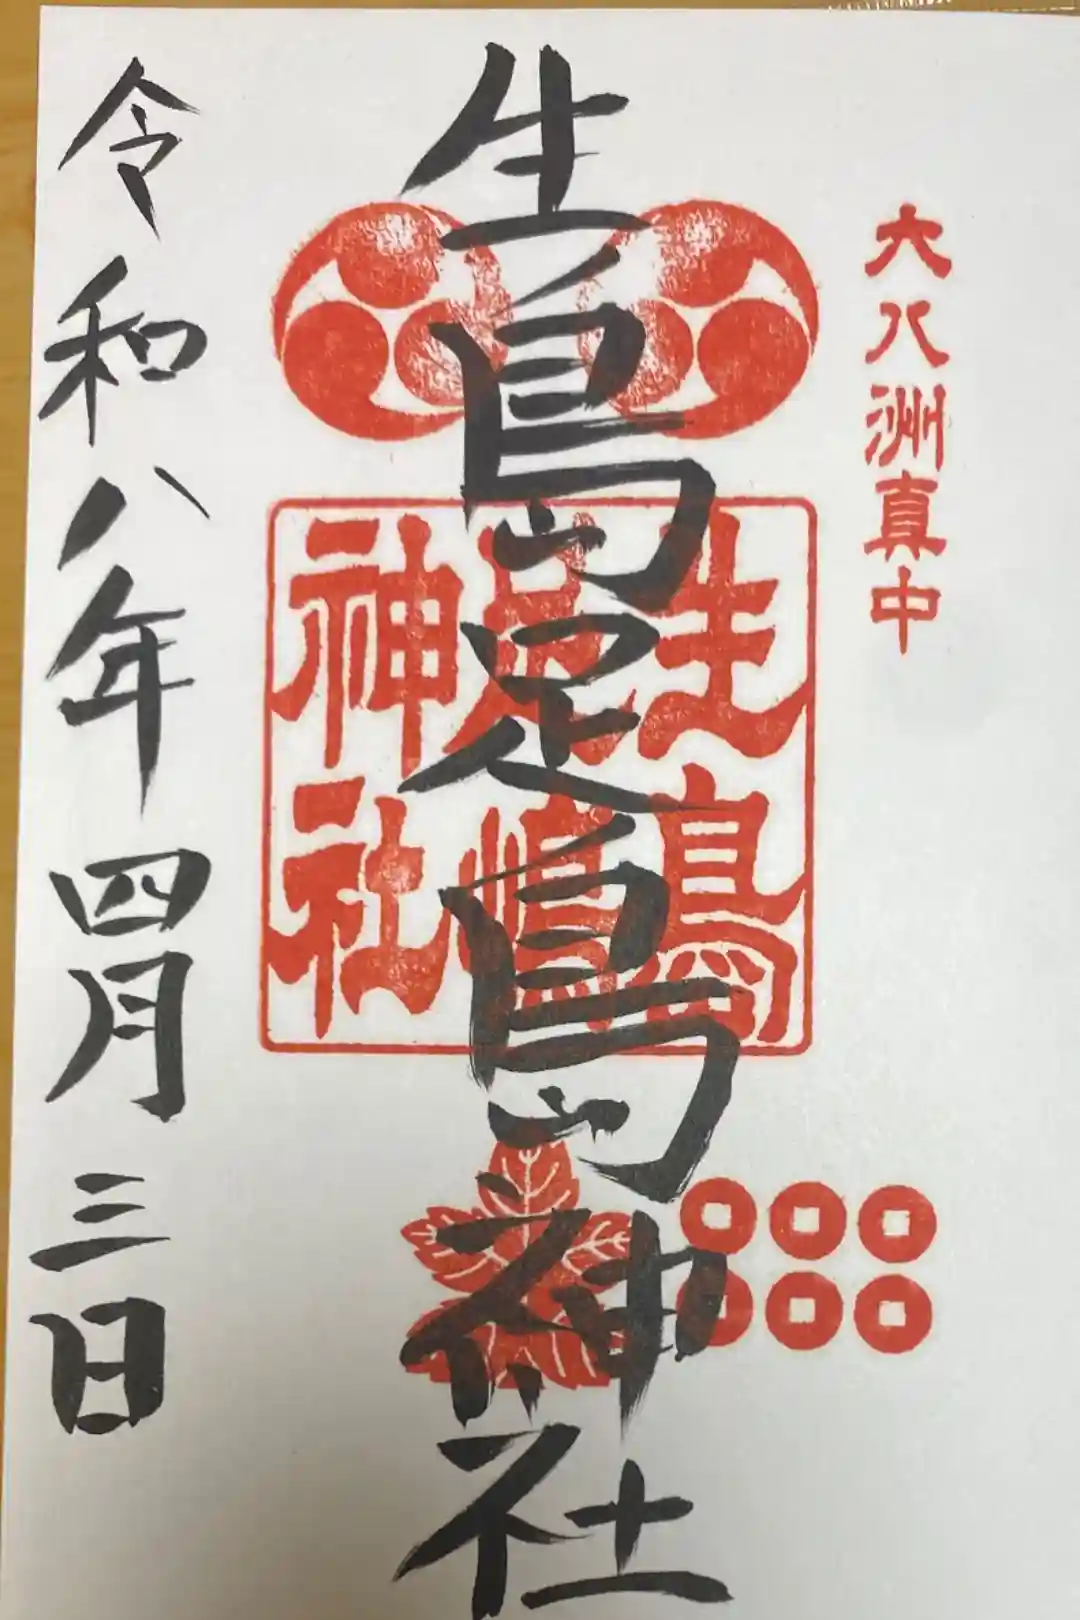 大八洲真中
生島足島神社
生島
足嶋
神社
令和八年四月三日